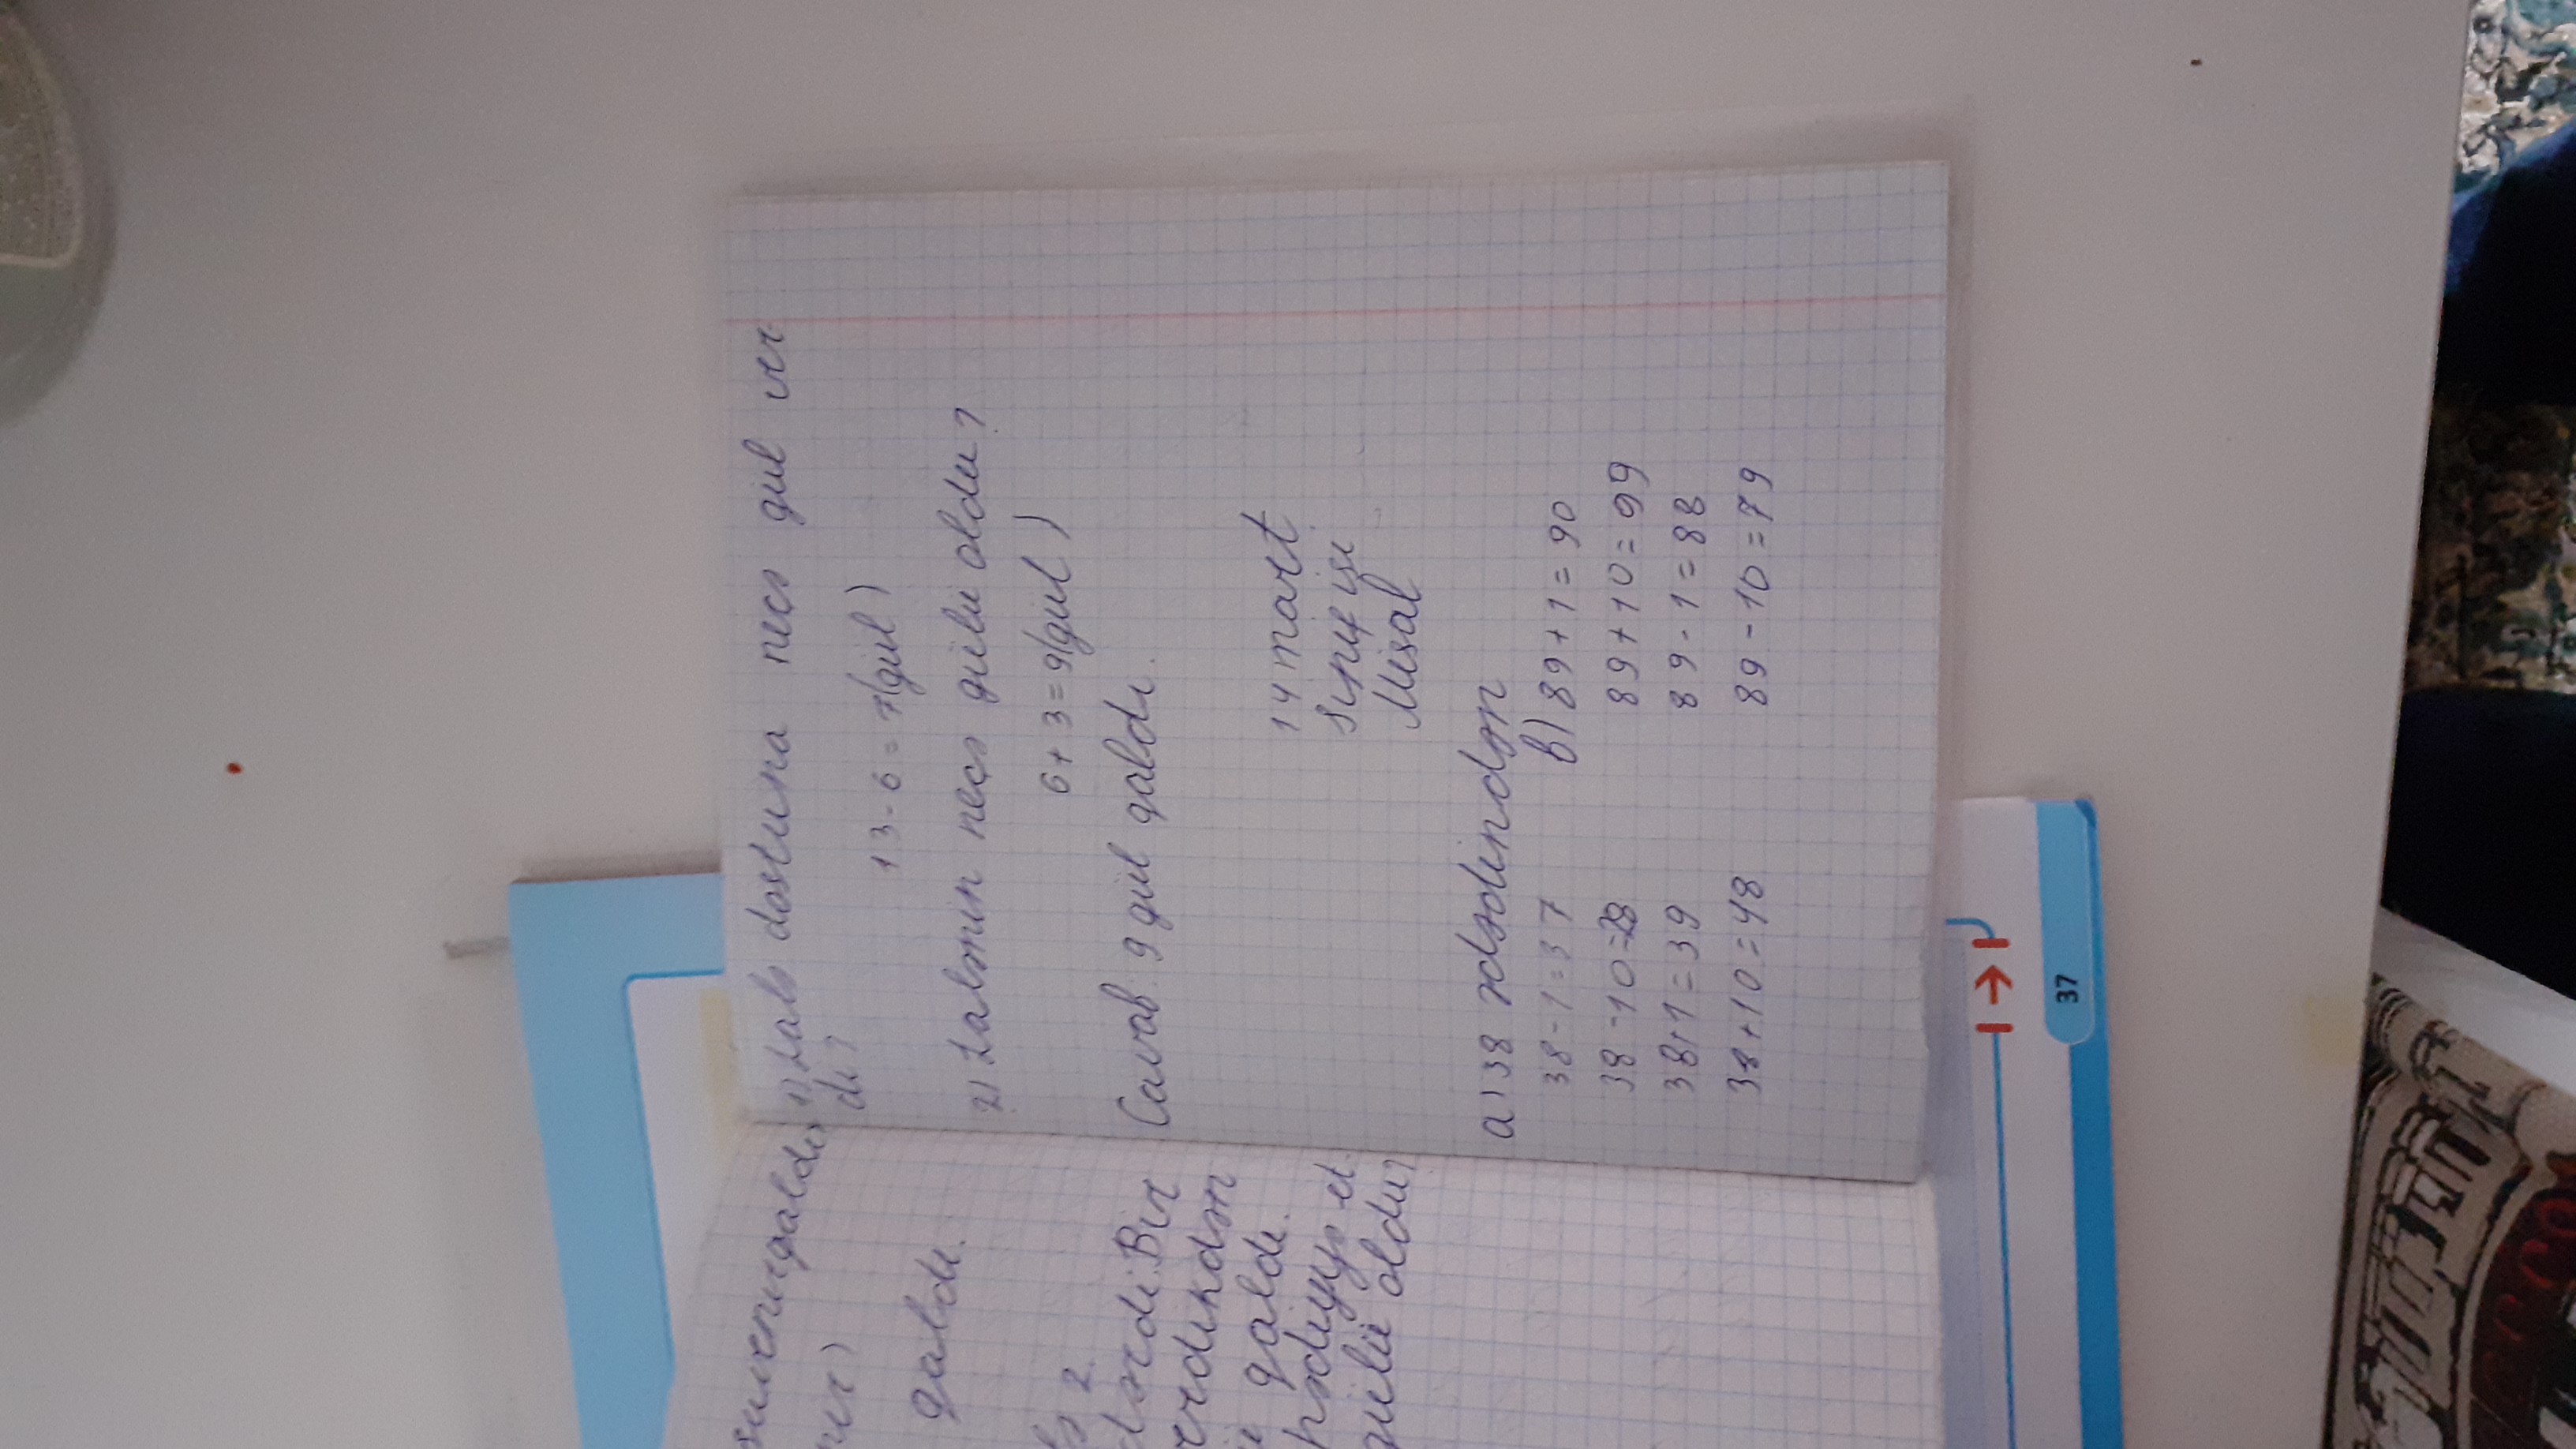 suvenirqaldı,
nir)
qaldı.
2
dərdi. Bir
verdikdən
qaldı.
hədiyyə et
gülü oldu?
1) Lalə dostuna neçə gül ver
di?
13 - 6 = 7(gül)
2) Lalənin neçə gülü oldu?
6 + 3 = 9(gül)
Cavab. 9 gül qaldı.
14 mart
Sinif işi
Misal
a) 38 ədədindən
38 - 1 = 37 b) 89 + 1 = 90
38 - 10 = 28 89 + 10 = 99
38 + 1 = 39 89 - 1 = 88
38 + 10 = 48 89 - 10 = 79
37